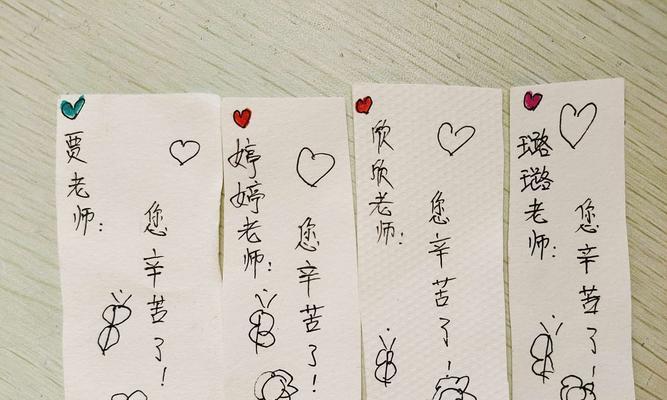 贾老师：
您辛苦了！
婷婷老师：
您辛苦了！
欣欣老师：
您辛苦了！
璐璐老师：
您辛苦了！